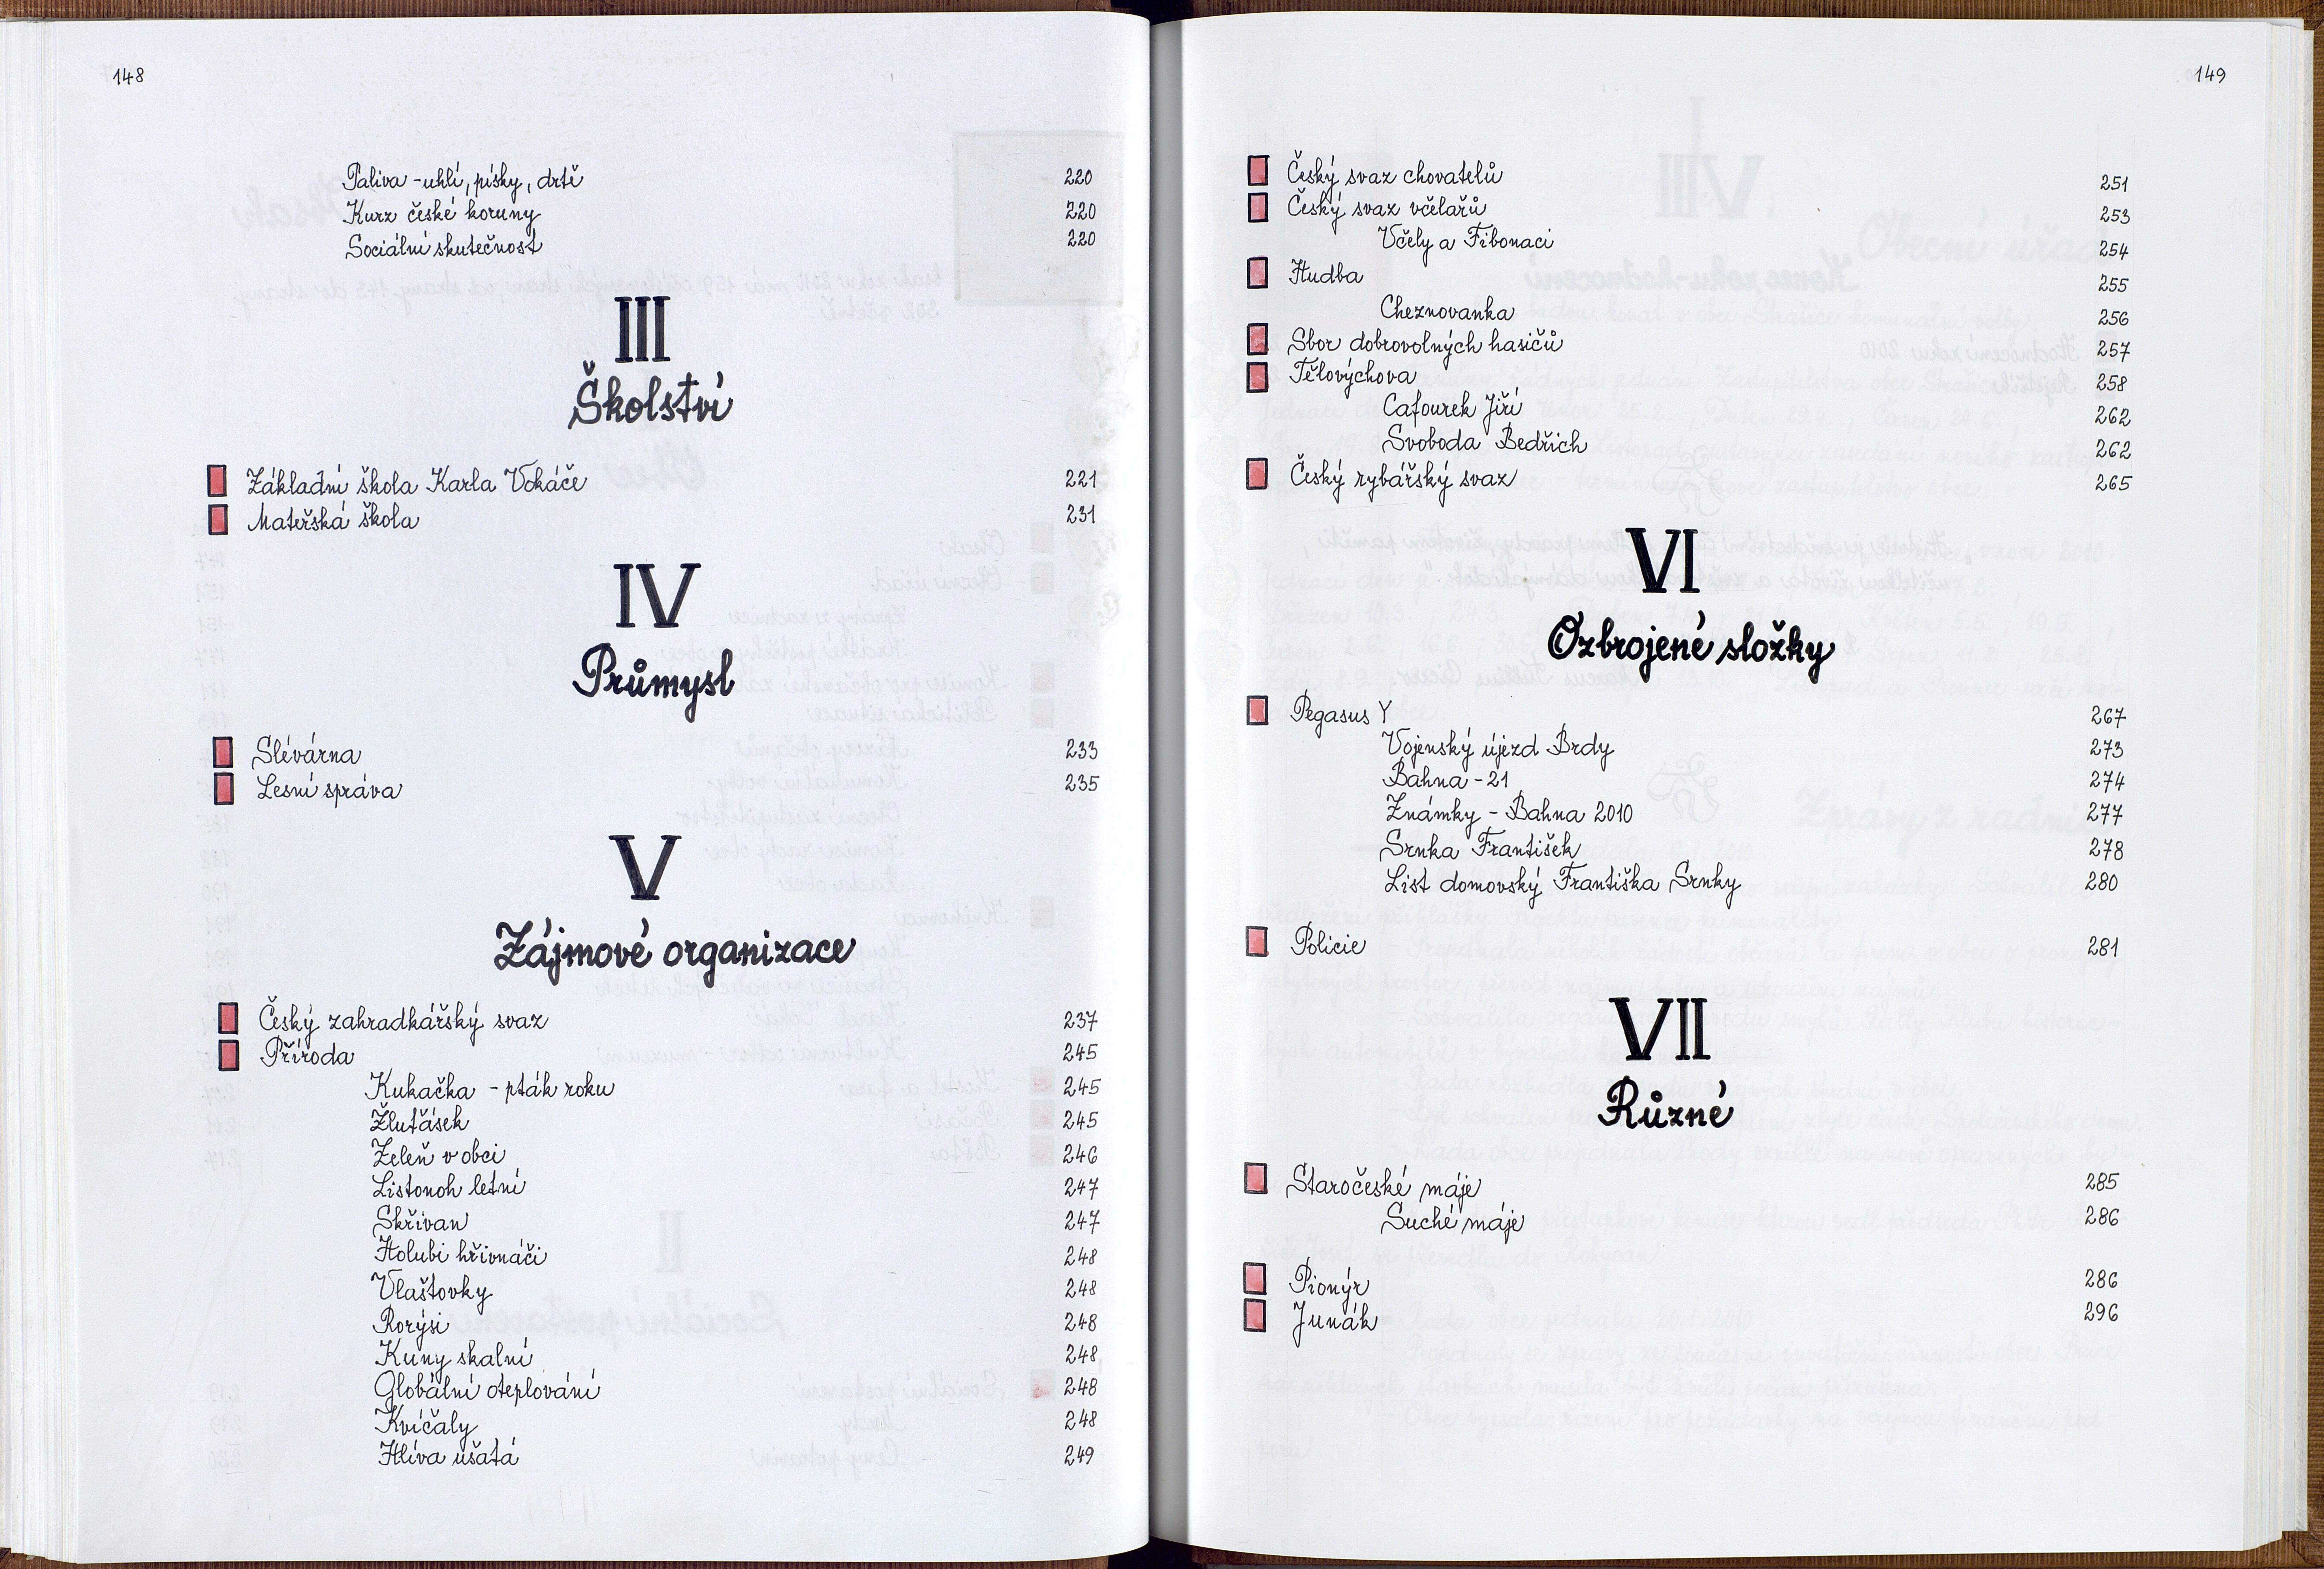 148
Paliva - uhlí, písky, drtě 220
Kurz české koruny 220
Sociální skutečnost 220
III
Školství
Základní škola Karla Vokáče 221
Mateřská škola 231
IV
Průmysl
Slévárna 233
Lesní správa 235
V
Zájmové organizace
Český zahradkářský svaz 237
Příroda 245
Kukačka - pták roku 245
Žluťásek 245
Zeleň v obci 246
Listonoh letní 247
Skřivan 247
Holubi hřivnáči 248
Vlaštovky 248
Rorýsi 248
Kuny skalní 248
Globální oteplování 248
Kvíčaly 248
Hlíva ušatá 249
149
Český svaz chovatelů 251
Český svaz včelařů 253
Včely a Fibonaci 254
Hudba 255
Cheznovanka 256
Sbor dobrovolných hasičů 257
Tělovýchova 258
Cafourek Jiří 262
Svoboda Bedřich 262
Český rybářský svaz 265
VI
Ozbrojené složky
Pegasus Y 267
Vojenský újezd Brdy 273
Bahna - 21 274
Známky - Bahna 2010 277
Srnka František 278
List domovský Františka Srnky 280
Policie 281
VII
Různé
Staročeské máje 285
Suché máje 286
Pionýr 286
Junák 296